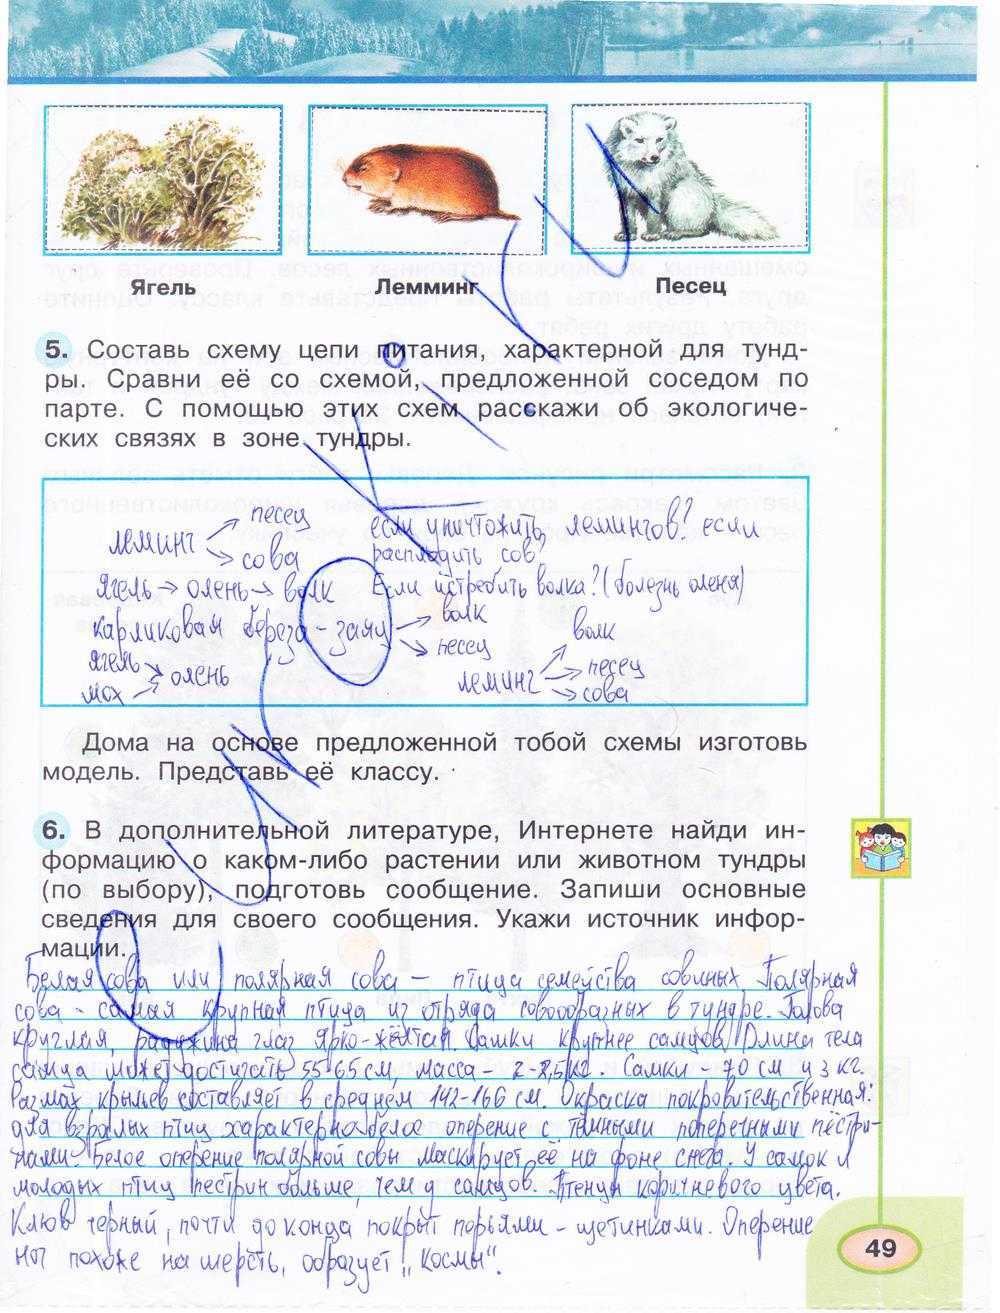 Ягель Лемминг Песец
5. Составь схему цепи питания, характерной для тунд-
ры. Сравни её со схемой, предложенной соседом по
парте. С помощью этих схем расскажи об экологиче-
ских связях в зоне тундры.
леминг → песец
→ сова
если уничтожить лемингов? если
расплодить сов?
ягель → олень → волк
Если истребить волка? (болезнь оленя)
карликовая береза - заяц → волк
→ песец
ягель → олень
мох →
леминг → волк
→ песец
→ сова
Дома на основе предложенной тобой схемы изготовь
модель. Представь её классу.
6. В дополнительной литературе, Интернете найди ин-
формацию о каком-либо растении или животном тундры
(по выбору), подготовь сообщение. Запиши основные
сведения для своего сообщения. Укажи источник инфор-
мации.
Белая сова или полярная сова – птица семейства совиных. Полярная
сова - самая крупная птица из отряда совообразных в тундре. Голова
круглая, радужина глаз ярко-жёлтая. Самки крупнее самцов. Длина тела
самца может достигать 55-65 см, масса - 2-2,5 кг. Самки - 70 см и 3 кг.
Размах крыльев составляет в среднем 142-166 см. Окраска покровительственная:
для взрослых птиц характерно белое оперение с тёмными поперечными пестри-
нами. Белое оперение полярной совы маскирует её на фоне снега. У самок и
молодых птиц пестрин больше, чем у самцов. Птенцы коричневого цвета.
Клюв черный, почти до конца покрыт перьями - щетинками. Оперение
ног похоже на шерсть, образует „космы".
49